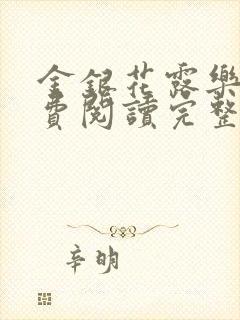 金銀花露樂
費閱讀完整
辛明